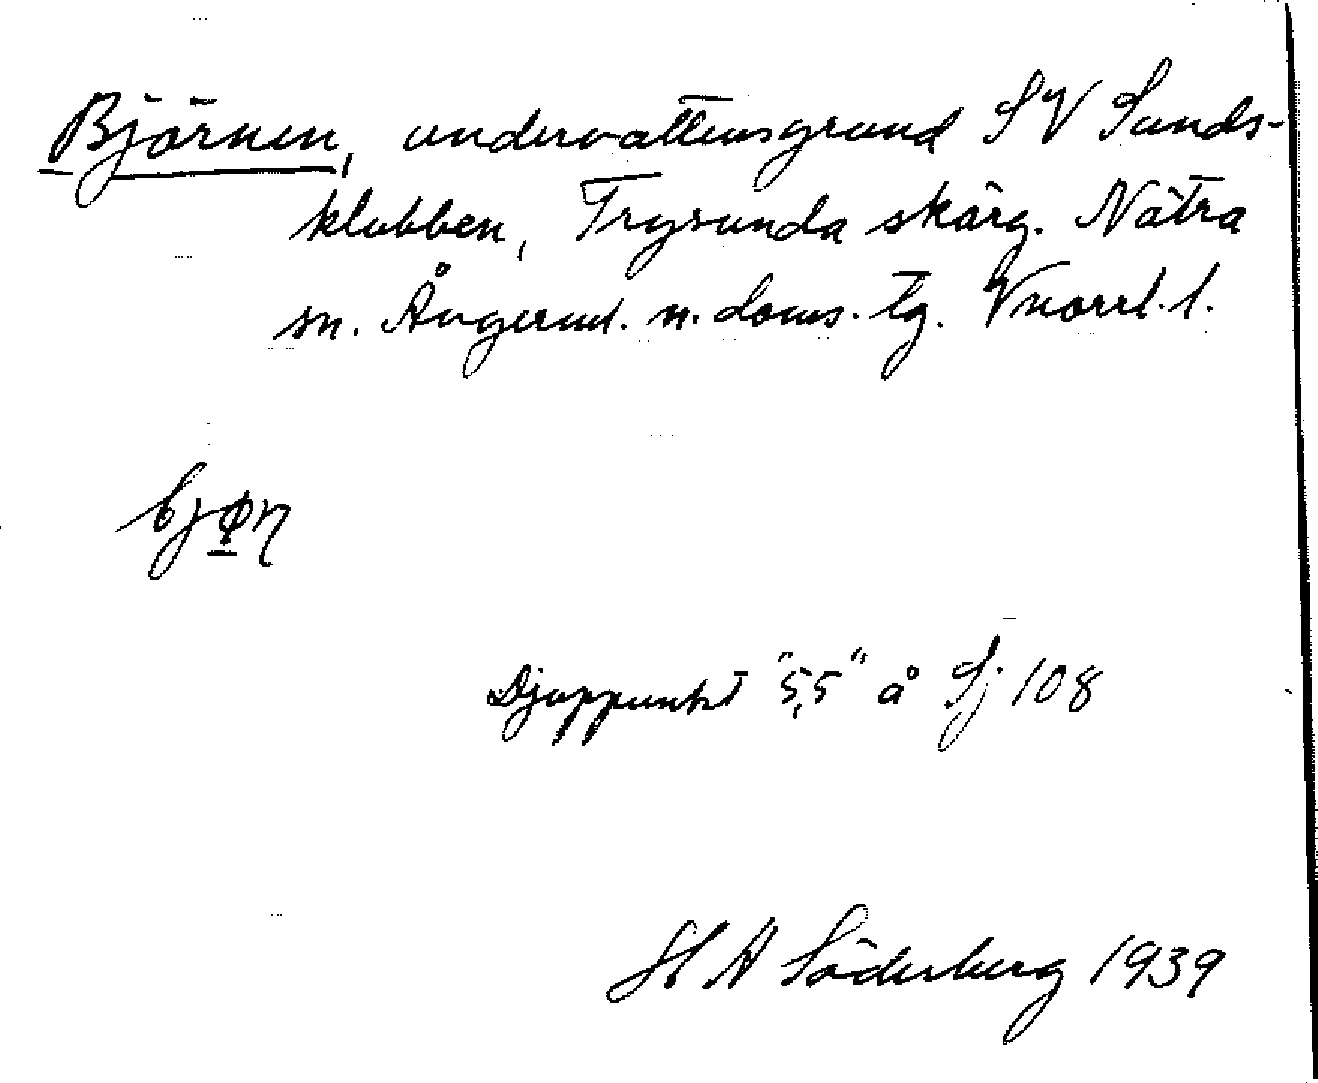 Björnen, undervattensgrund SV Sunds-
klubben, Trysunda skärg. Nätra
sn. Ångerml. n. doms. tg. Vnorrl. l.
bjøn
Djuppunkt "5,5" å Sj 108
H A Söderberg 1939